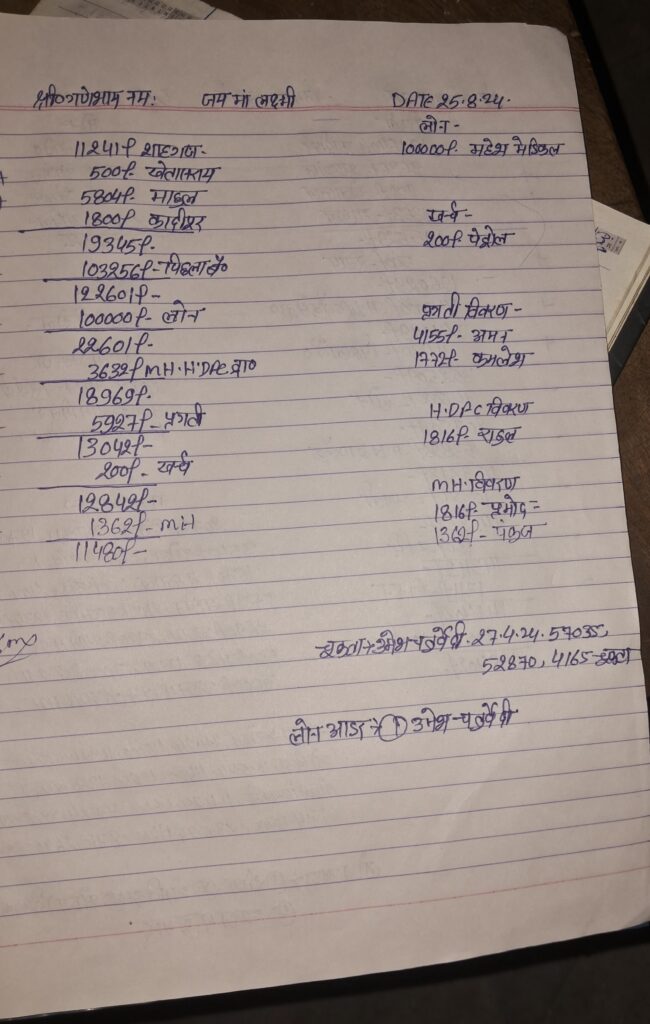 श्री गणेशाय नमः जय मां लक्ष्मी DATE 25.8.24.
11241/- शाहगंज-
500/- खेतासराय
5804/- माहुल
1800/- कादीपुर
19345/-
103256/- पिछला बै०
122601/-
100000/- लोन
22601/-
3632/- MH.H.DPC प्रा०
18969/-
5927/- प्रगती
13042/-
200/- खर्च
12842/-
1362/- MH
11480/-
लोन-
100000/- महेश मेडिकल
खर्च-
200/- पेट्रोल
प्रगती विवरण-
4155/- अमन
1772/- कमलेश
H.DPC विवरण
1816/- राहुल
MH. विवरण
1816/- प्रमोद-
1362/- पंकज
उमेश चतुर्वेदी. 27.4.24. 57035,
52870, 4165
लोन आडर → ① उमेश चतुर्वेदी